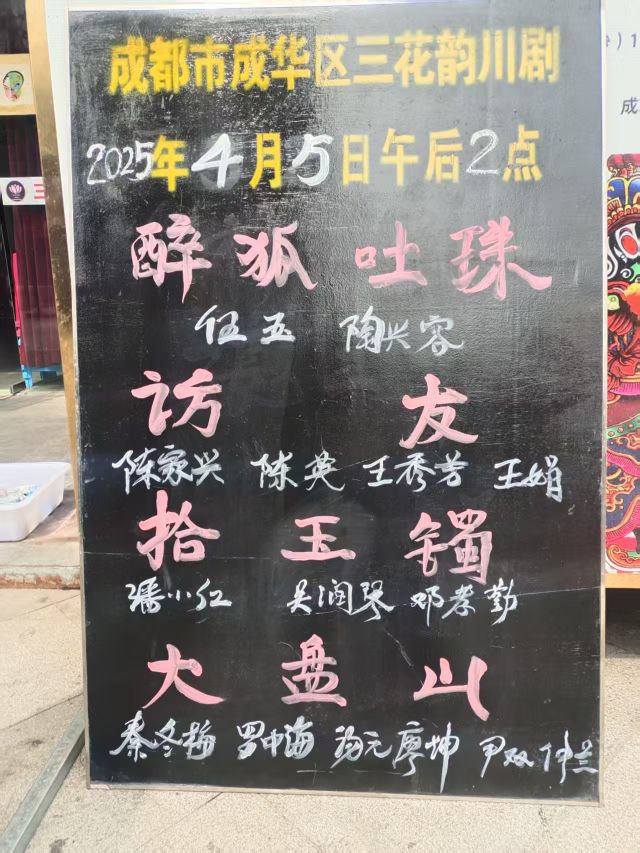 成都市成华区三花韵川剧
2025年4月5日午后2点
醉狐吐珠
伍玉 陶兴容
访友
陈家兴 陈英 王秀芳 王娟
拾玉镯
潘小红 吴润琴 邓孝勤
大盘山
秦冬梅 罗中海 杨元 廖坤 尹双 仲兰
三
成